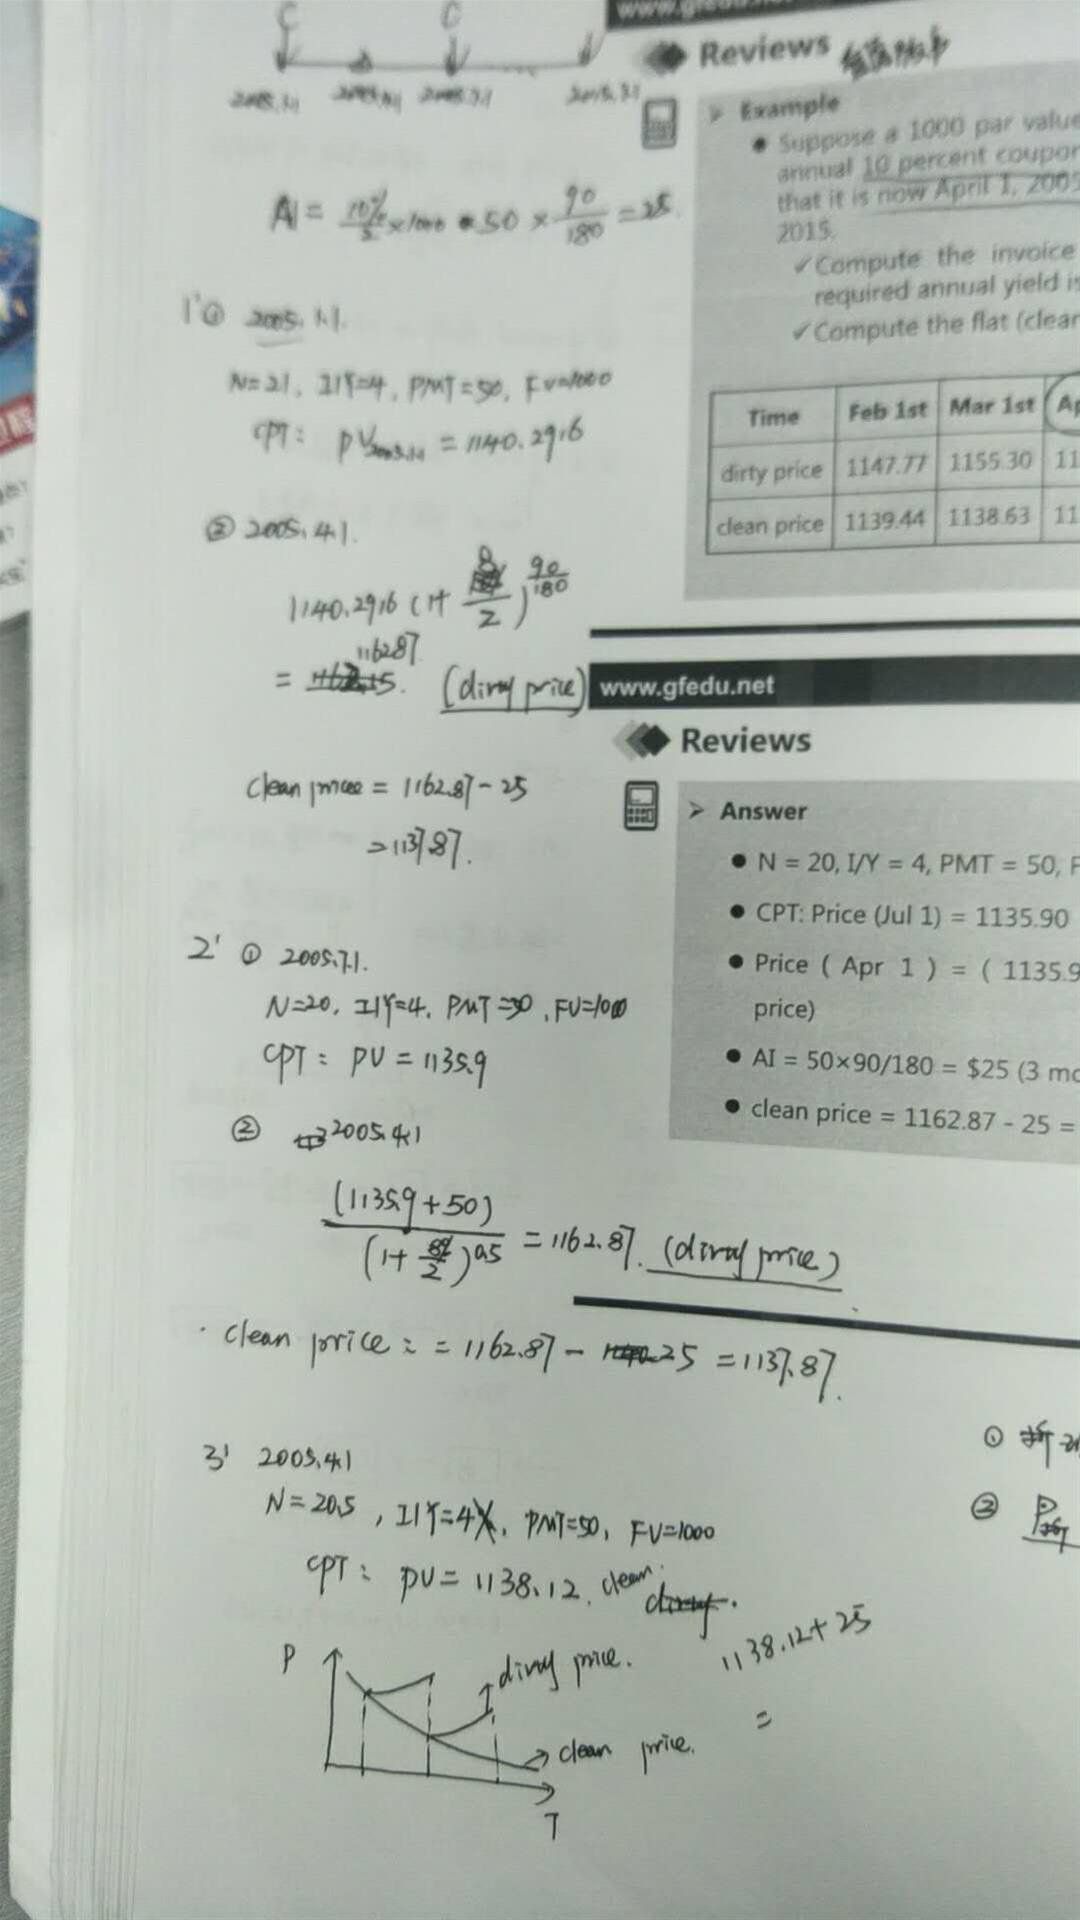 www.gfedu.net
Reviews
C
C
Example
Suppose a 1000 par value
annual 10 percent coupon
that it is now April 1, 2005
2015.
✓Compute the invoice
required annual yield is
✓Compute the flat (clean
AI = 10%/2 ×1000 50 × 90/180 = 25
1' ① 2005.1.1.
N=21, I/Y=4, PMT=50, FV=1000
CPT: PV = 1140.2916
Time Feb 1st Mar 1st
dirty price 1147.77 1155.30 11
clean price 1139.44 1138.63 11
② 2005.4.1.
1140.2916 (1+ 8/2)^90/180
= 1162.87 (dirty price)
www.gfedu.net
Reviews
clean price = 1162.87 - 25
= 1137.87.
Answer
N = 20, I/Y = 4, PMT = 50, F
CPT: Price (Jul 1) = 1135.90
Price ( Apr 1 ) = ( 1135.9
price)
AI = 50×90/180 = $25 (3 mo
clean price = 1162.87 - 25 =
2' ① 2005.7.1.
N=20, I/Y=4, PMT=50, FV=1000
CPT: PV = 1135.9
② 2005.4.1
(1135.9+50)/(1+ 8%/2)^0.5 = 1162.87. (dirty price)
clean price: = 1162.87 - 25 = 1137.87.
3' 2005.4.1
N=20.5, I/Y=4, PMT=50, FV=1000
CPT: PV = 1138.12. clean.
dirty.
1138.12+25
=
① 折
② P折
P
dirty price.
clean price.
T